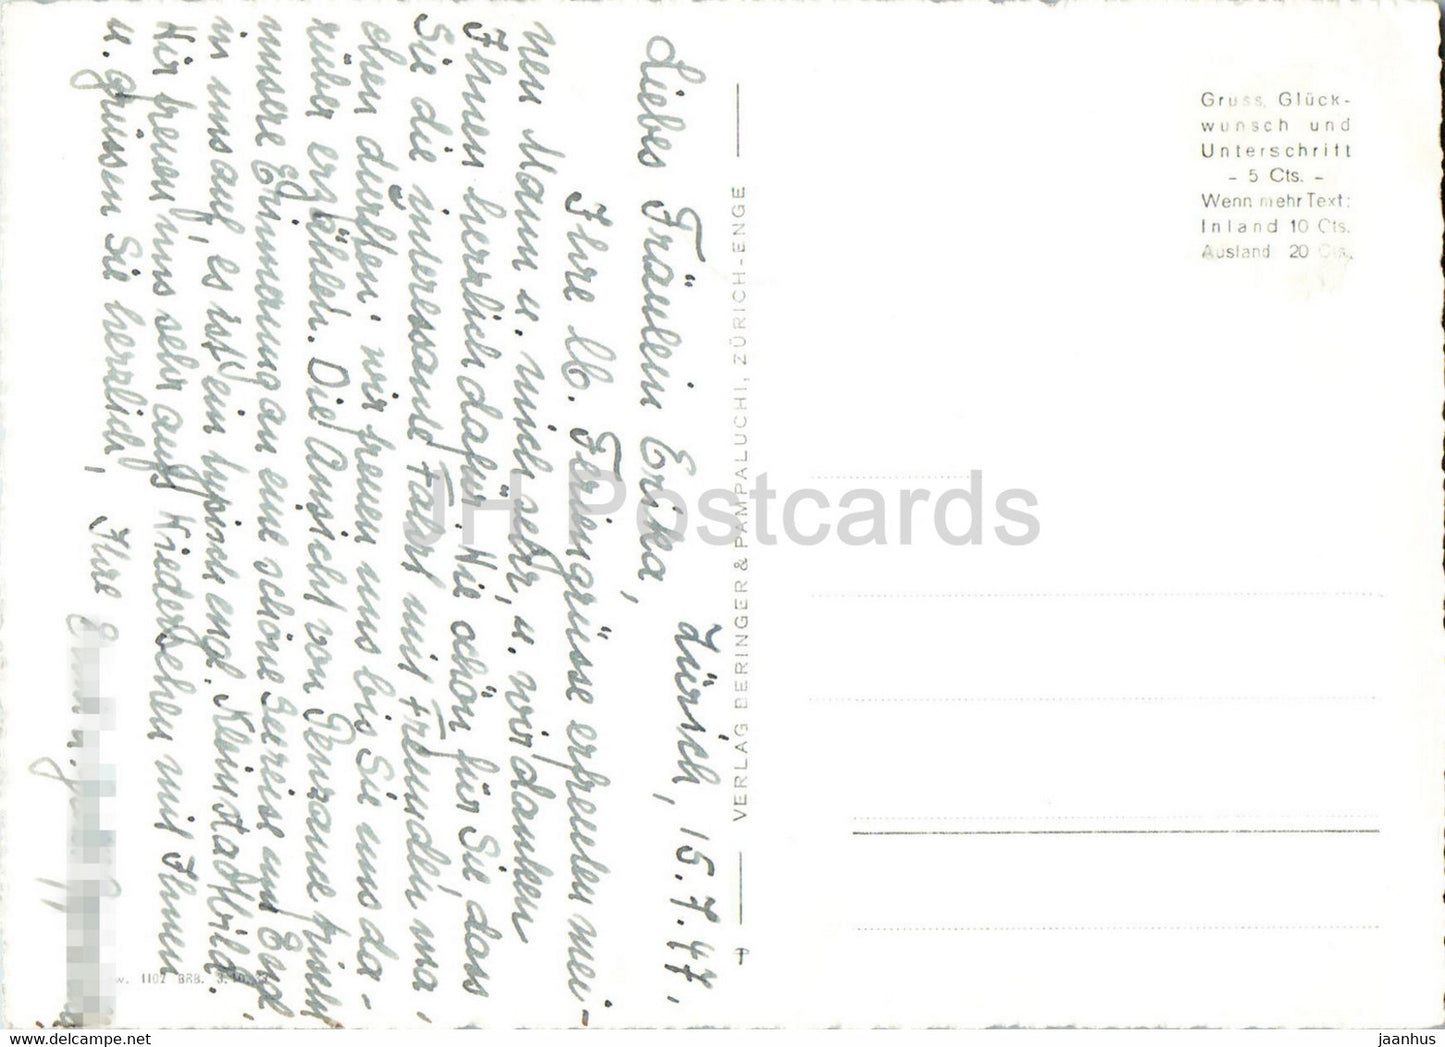 Zürich, 15.7.47,
Liebes Fräulein Erika,
Ihre lb. Feriengrüsse erfreuten mei-
nen Mann u. mich sehr, u. wir danken
Ihnen herzlich dafür. Wie schön für Sie, dass
Sie die interessante Fahrt mit Freunden ma,
chen durften' wir freuen uns bis Sie uns da-
rüber erzählen. Die Ansicht von Penzance frischt
unsere Erinnerung an eine schöne Seereise um Engl.
in uns auf, es ist ein typisch engl. Kleinstadtbild.
Wir freuen uns sehr aufs Wiedersehen mit Ihnen
u. grüssen Sie herzlich,
Ihre
VERLAG BERINGER & PAMPALUCHI, ZÜRICH-ENGE
w. 1102 BRB. 3.10.
Gruss, Glück-
wunsch und
Unterschrift
- 5 Cts. -
Wenn mehr Text:
Inland 10 Cts.
Ausland 20 Cts.
JH Postcards
jaanhus - https://www.jhpostcards.com